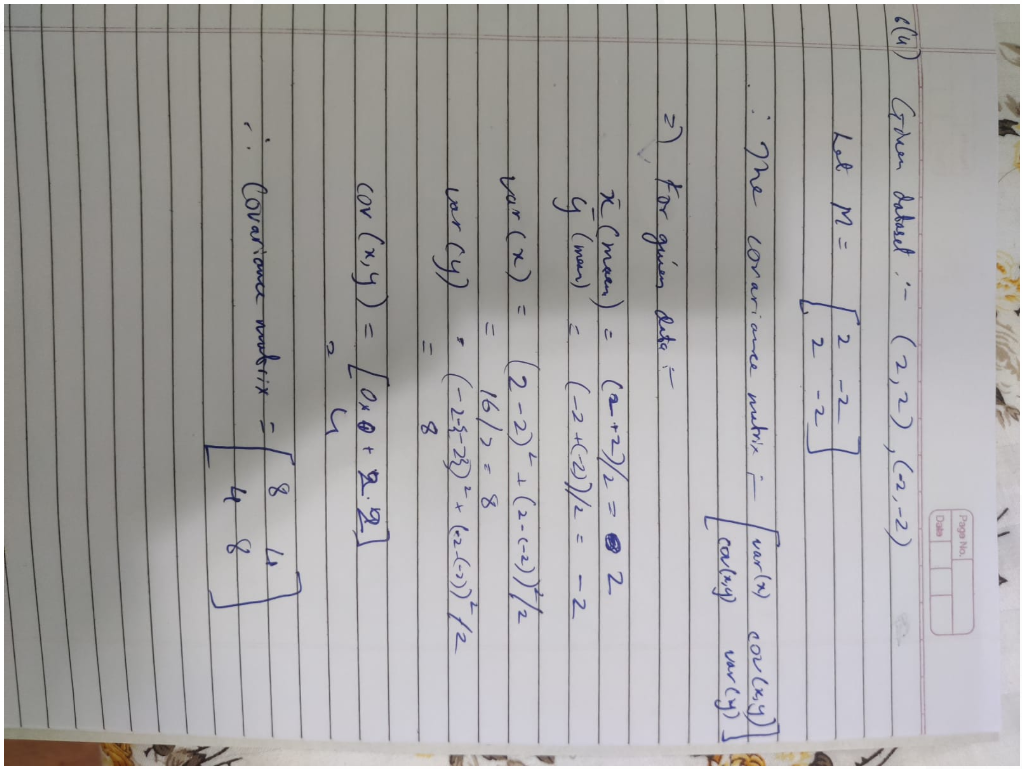 Page No.
Date
6(4) Given dataset :- (2,2), (-2,-2)
Let M = [ 2 -2
2 -2 ]
∴ The covariance metrix :- [ var(x) cov(x,y)
cov(x,y) var(y) ]
=> For given data :-
x̄ (mean) = (2+2)/2 = 2
ȳ (mean) = (-2+(-2))/2 = -2
var(x) = (2-2)² + (2-(-2))²/2
= 16/2 = 8
var(y) = (-2-{-2})² + (-2-(-2))²/2
= 8
cov(x,y) = [0x0 + 2.2]
= 4
∴ Covariance matrix = [ 8 4
4 8 ]